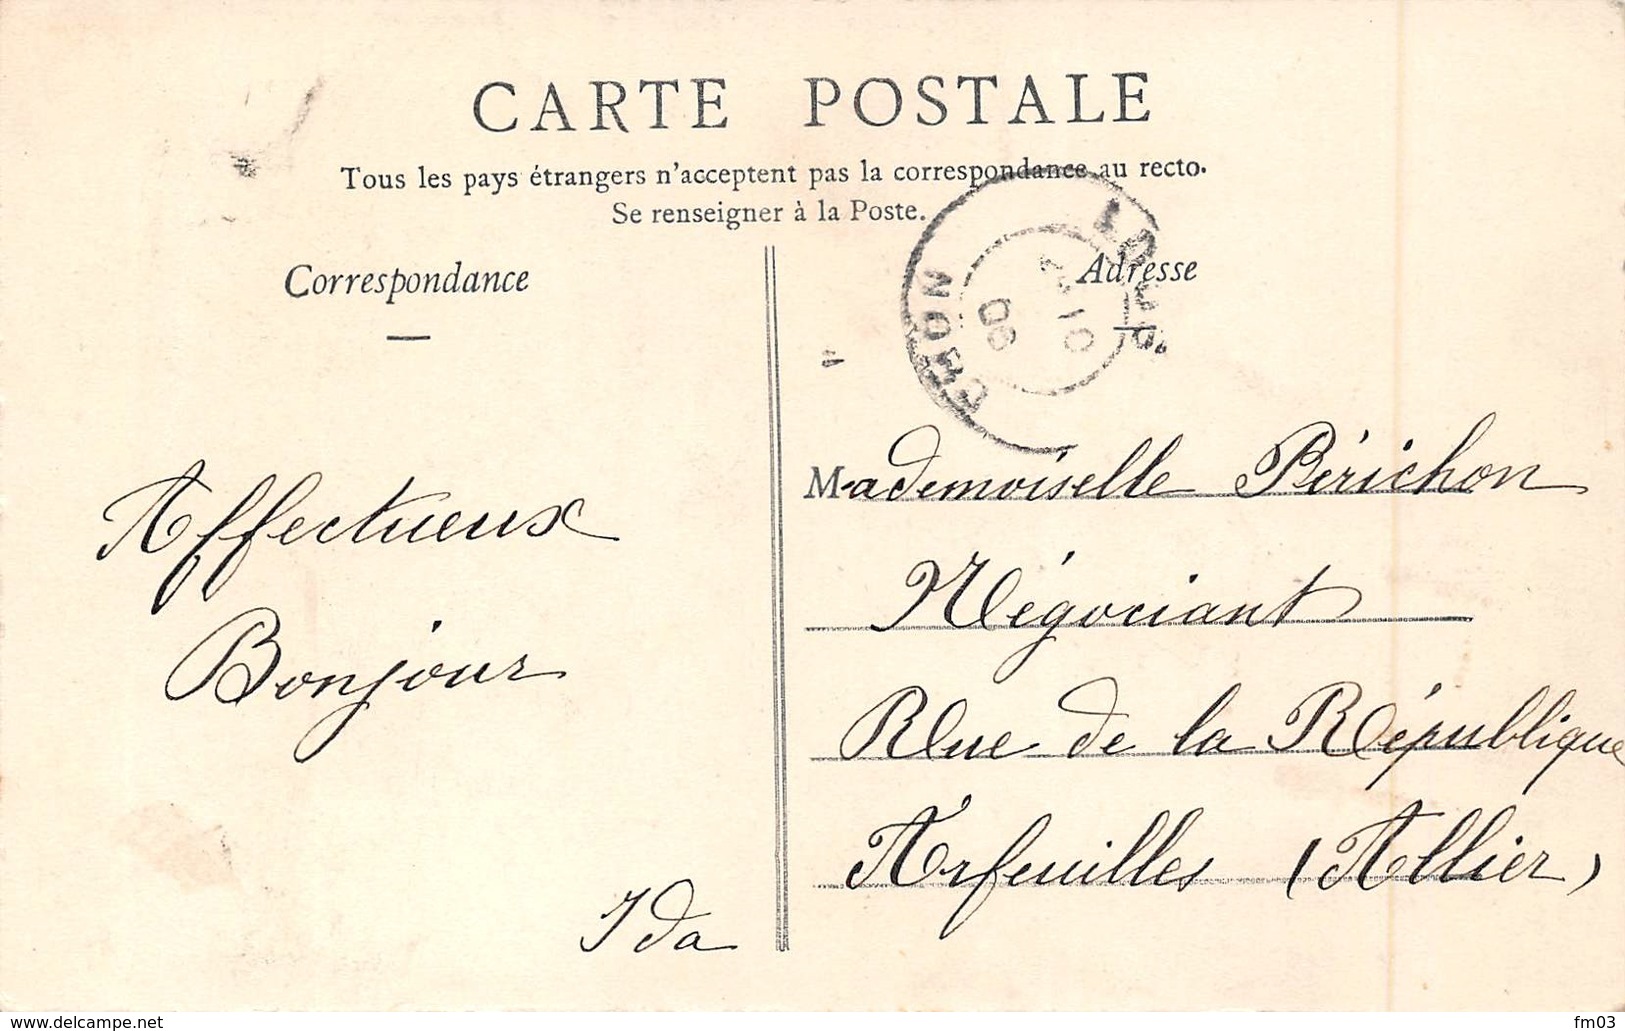 CARTE POSTALE
Tous les pays étrangers n'acceptent pas la correspondance au recto.
Se renseigner à la Poste.
Correspondance
Adresse
Affectueux
Bonjour
Ida
Mademoiselle Périchon
Négociant
Rue de la République
Arfeuilles (Allier)
www.delcampe.net
fm03